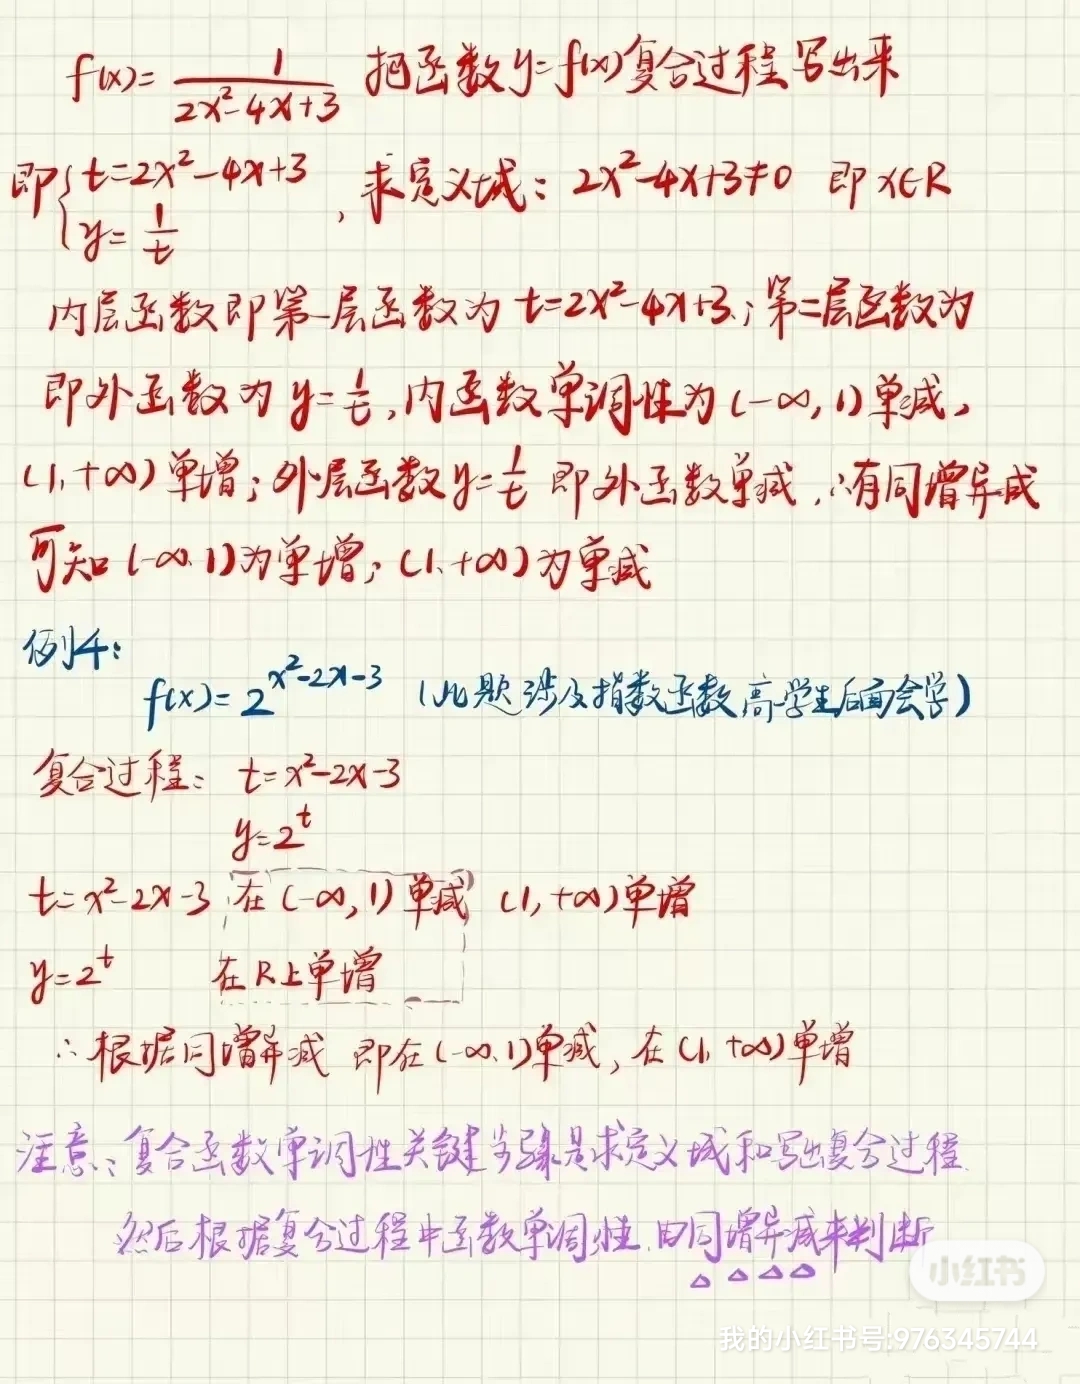 f(x)= 1/(2x²-4x+3) 把函数y=f(x)复合过程写出来
即{t=2x²-4x+3
y=1/t , 求定义域: 2x²-4x+3≠0 即x∈R
内层函数即第一层函数为t=2x²-4x+3;第二层函数为
即外函数为y=1/t,内函数单调性为(-∞,1)单减,
(1,+∞)单增;外层函数y=1/t 即外函数单减,∴有同增异减
可知(-∞,1)为单增;(1,+∞)为单减
例4:
f(x)=2^(x²-2x-3) (此题涉及指数函数高一学生后面会学)
复合过程: t=x²-2x-3
y=2^t
t=x²-2x-3 在(-∞,1)单减 (1,+∞)单增
y=2^t 在R上单增
∴根据同增异减 即在(-∞,1)单减,在(1,+∞)单增
注意:复合函数单调性关键步骤是求定义域和写出复合过程
然后根据复合过程中函数单调性,由同增异减来判断
小红书
我的小红书号:976345744